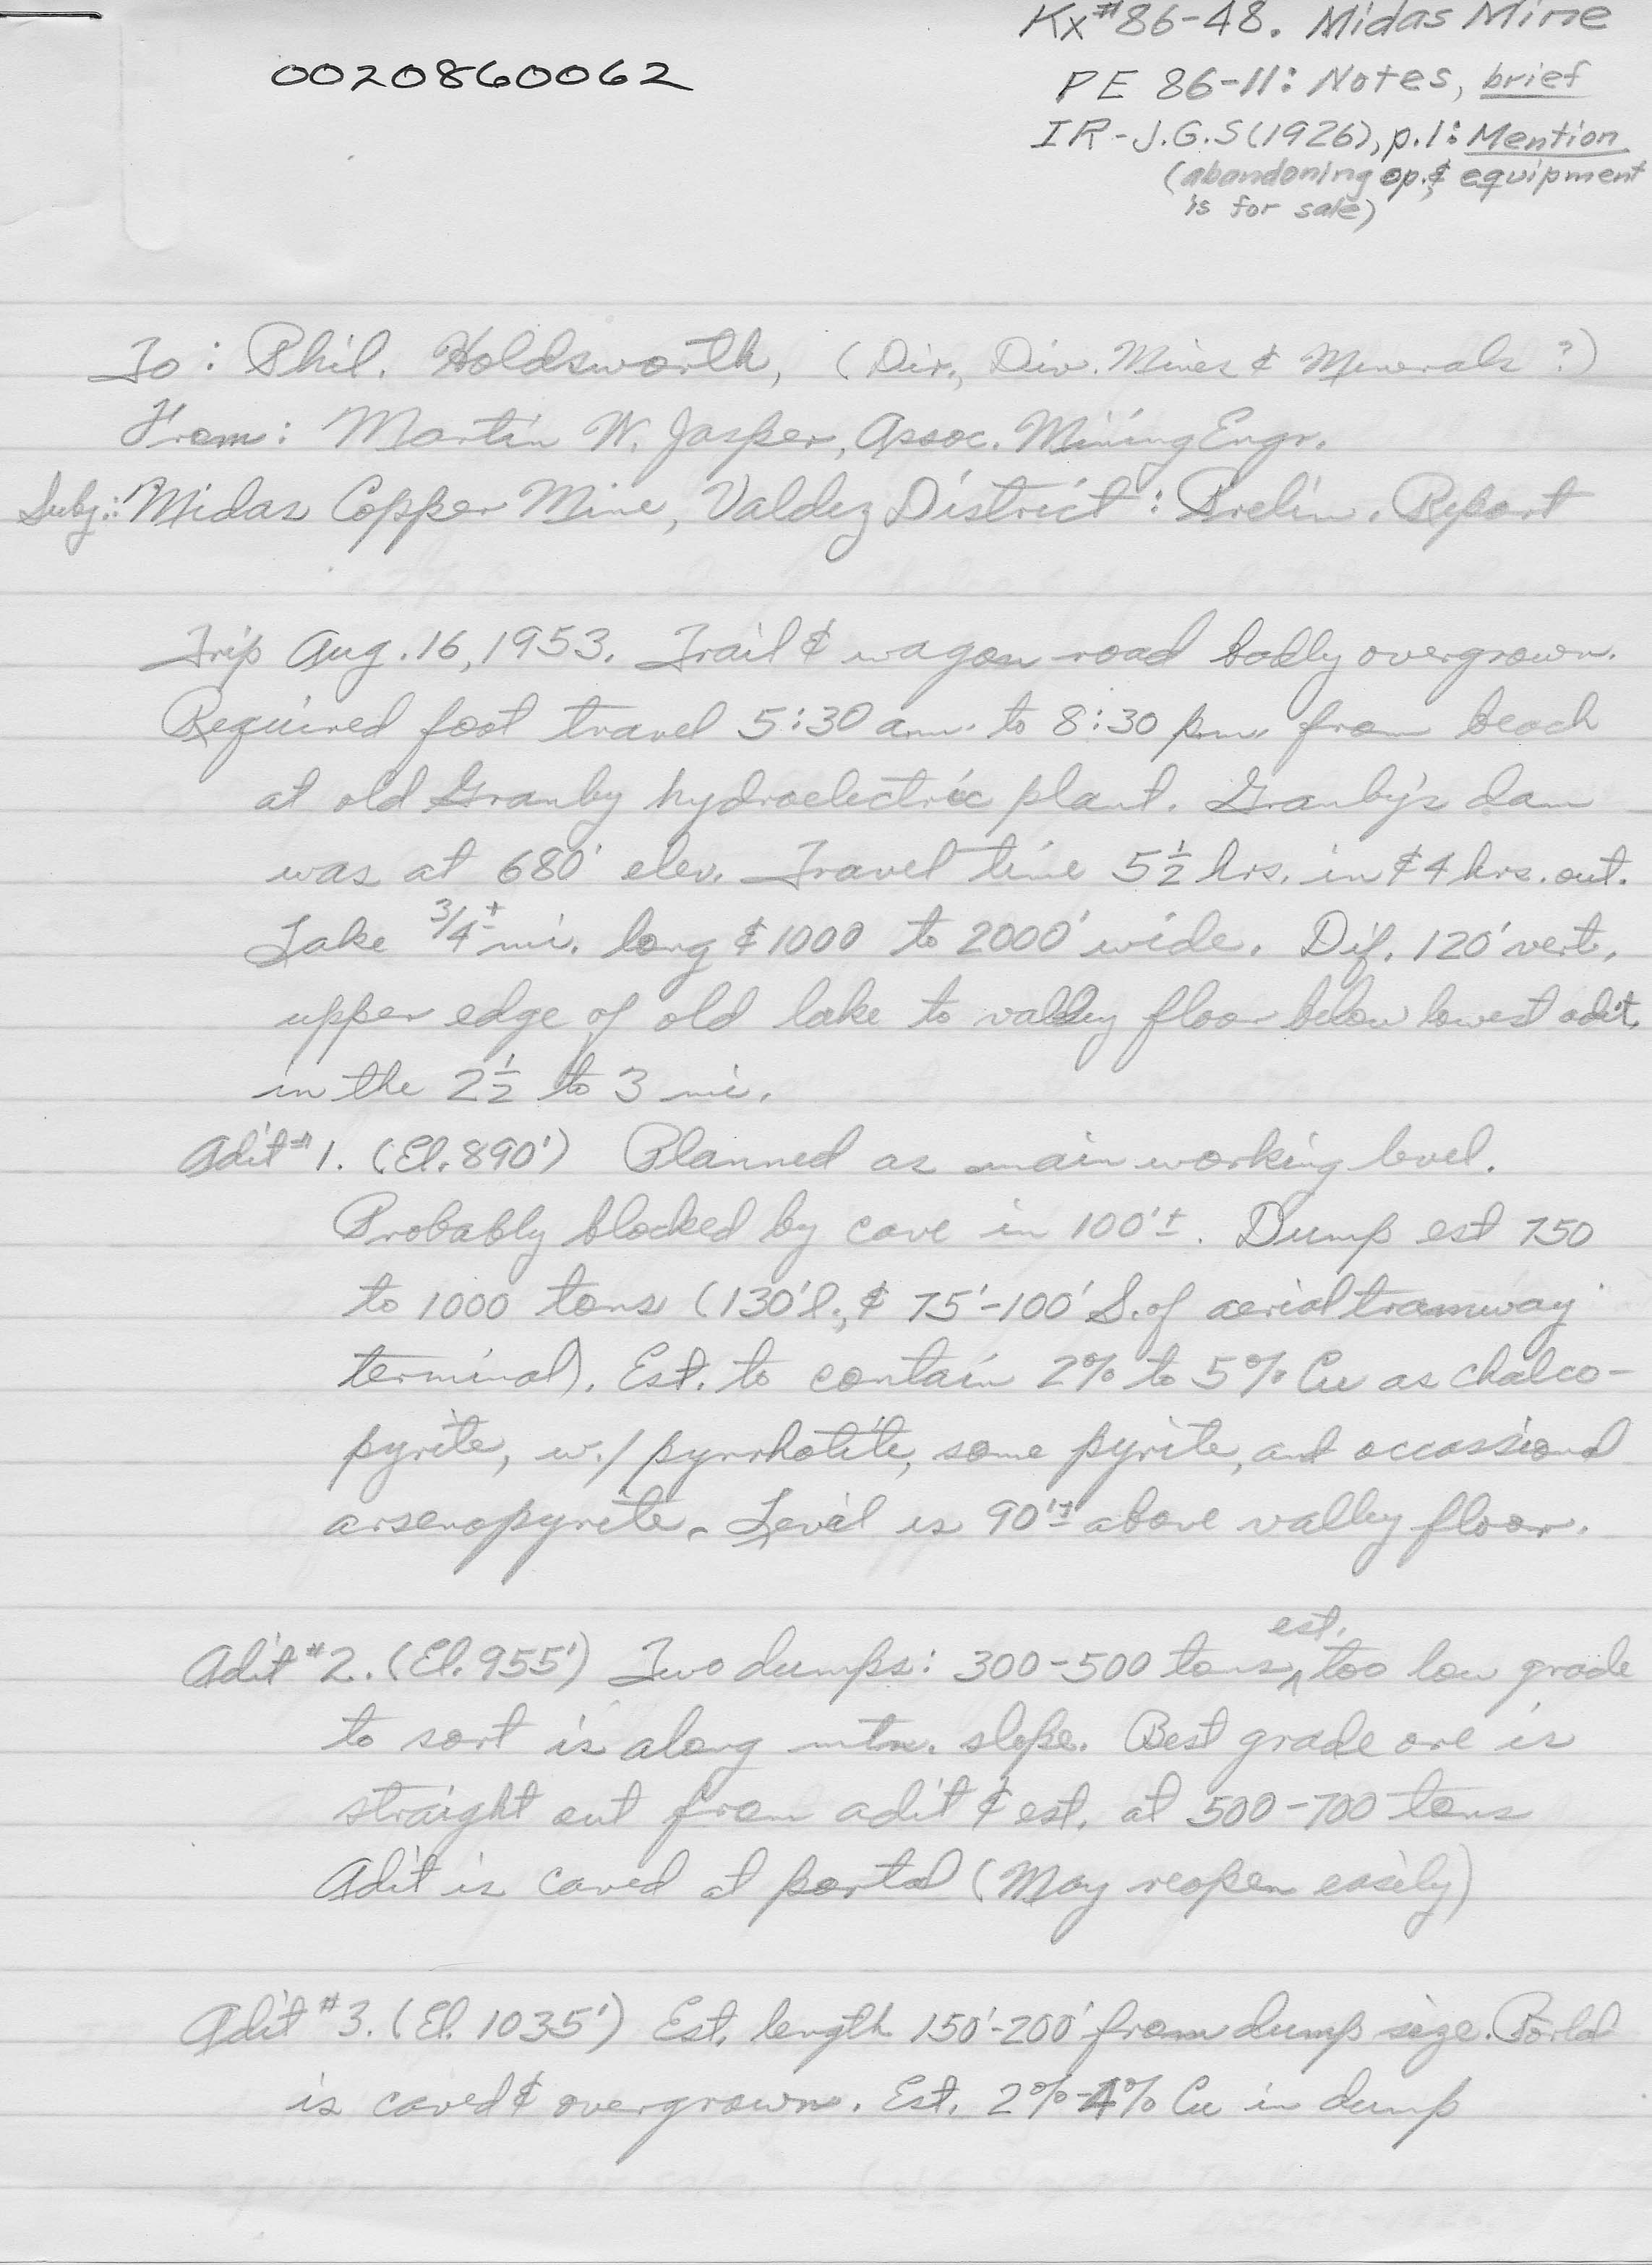 Kx #86-48. Midas Mine
0020860062
PE 86-11: Notes, brief
IR - J.G.S (1926), p.1: Mention
(abandoning op. & equipment
is for sale)
To: Phil. Holdsworth, (Dir., Div. Mines & Minerals ?)
From: Martin W. Jasper, Assoc. Mining Engr.
Subj.: Midas Copper Mine, Valdez District: Prelim. Report
Trip Aug. 16, 1953. Trail & wagon road badly overgrown.
Required foot travel 5:30 am. to 8:30 pm. from beach
at old Granby hydroelectric plant. Granby's dam
was at 680' elev. Travel time 5 1/2 hrs. in & 4 hrs. out.
Lake 3/4± mi. long & 1000 to 2000' wide. Dif. 120' vert.
upper edge of old lake to valley floor below lowest adit.
in the 2 1/2 to 3 mi.
Adit #1. (El. 890') Planned as main working level.
Probably blocked by cave in 100'±. Dump est 750
to 1000 tons (130' l., & 75'-100' S. of aerial tramway
terminal). Est. to contain 2% to 5% Cu as chalco-
pyrite, w./ pyrrhotite, some pyrite, and occassional
arsenopyrite. Level is 90'± above valley floor.
Adit #2. (El. 955') Two dumps: 300-500 tons est. too low grade
to sort is along mtn. slope. Best grade ore is
straight out from adit & est. at 500-700 tons
Adit is caved at portal (May reopen easily)
Adit #3. (El. 1035') Est. length 150'-200' from dump size. Portal
is caved & overgrown. Est. 2%-4% Cu in dump